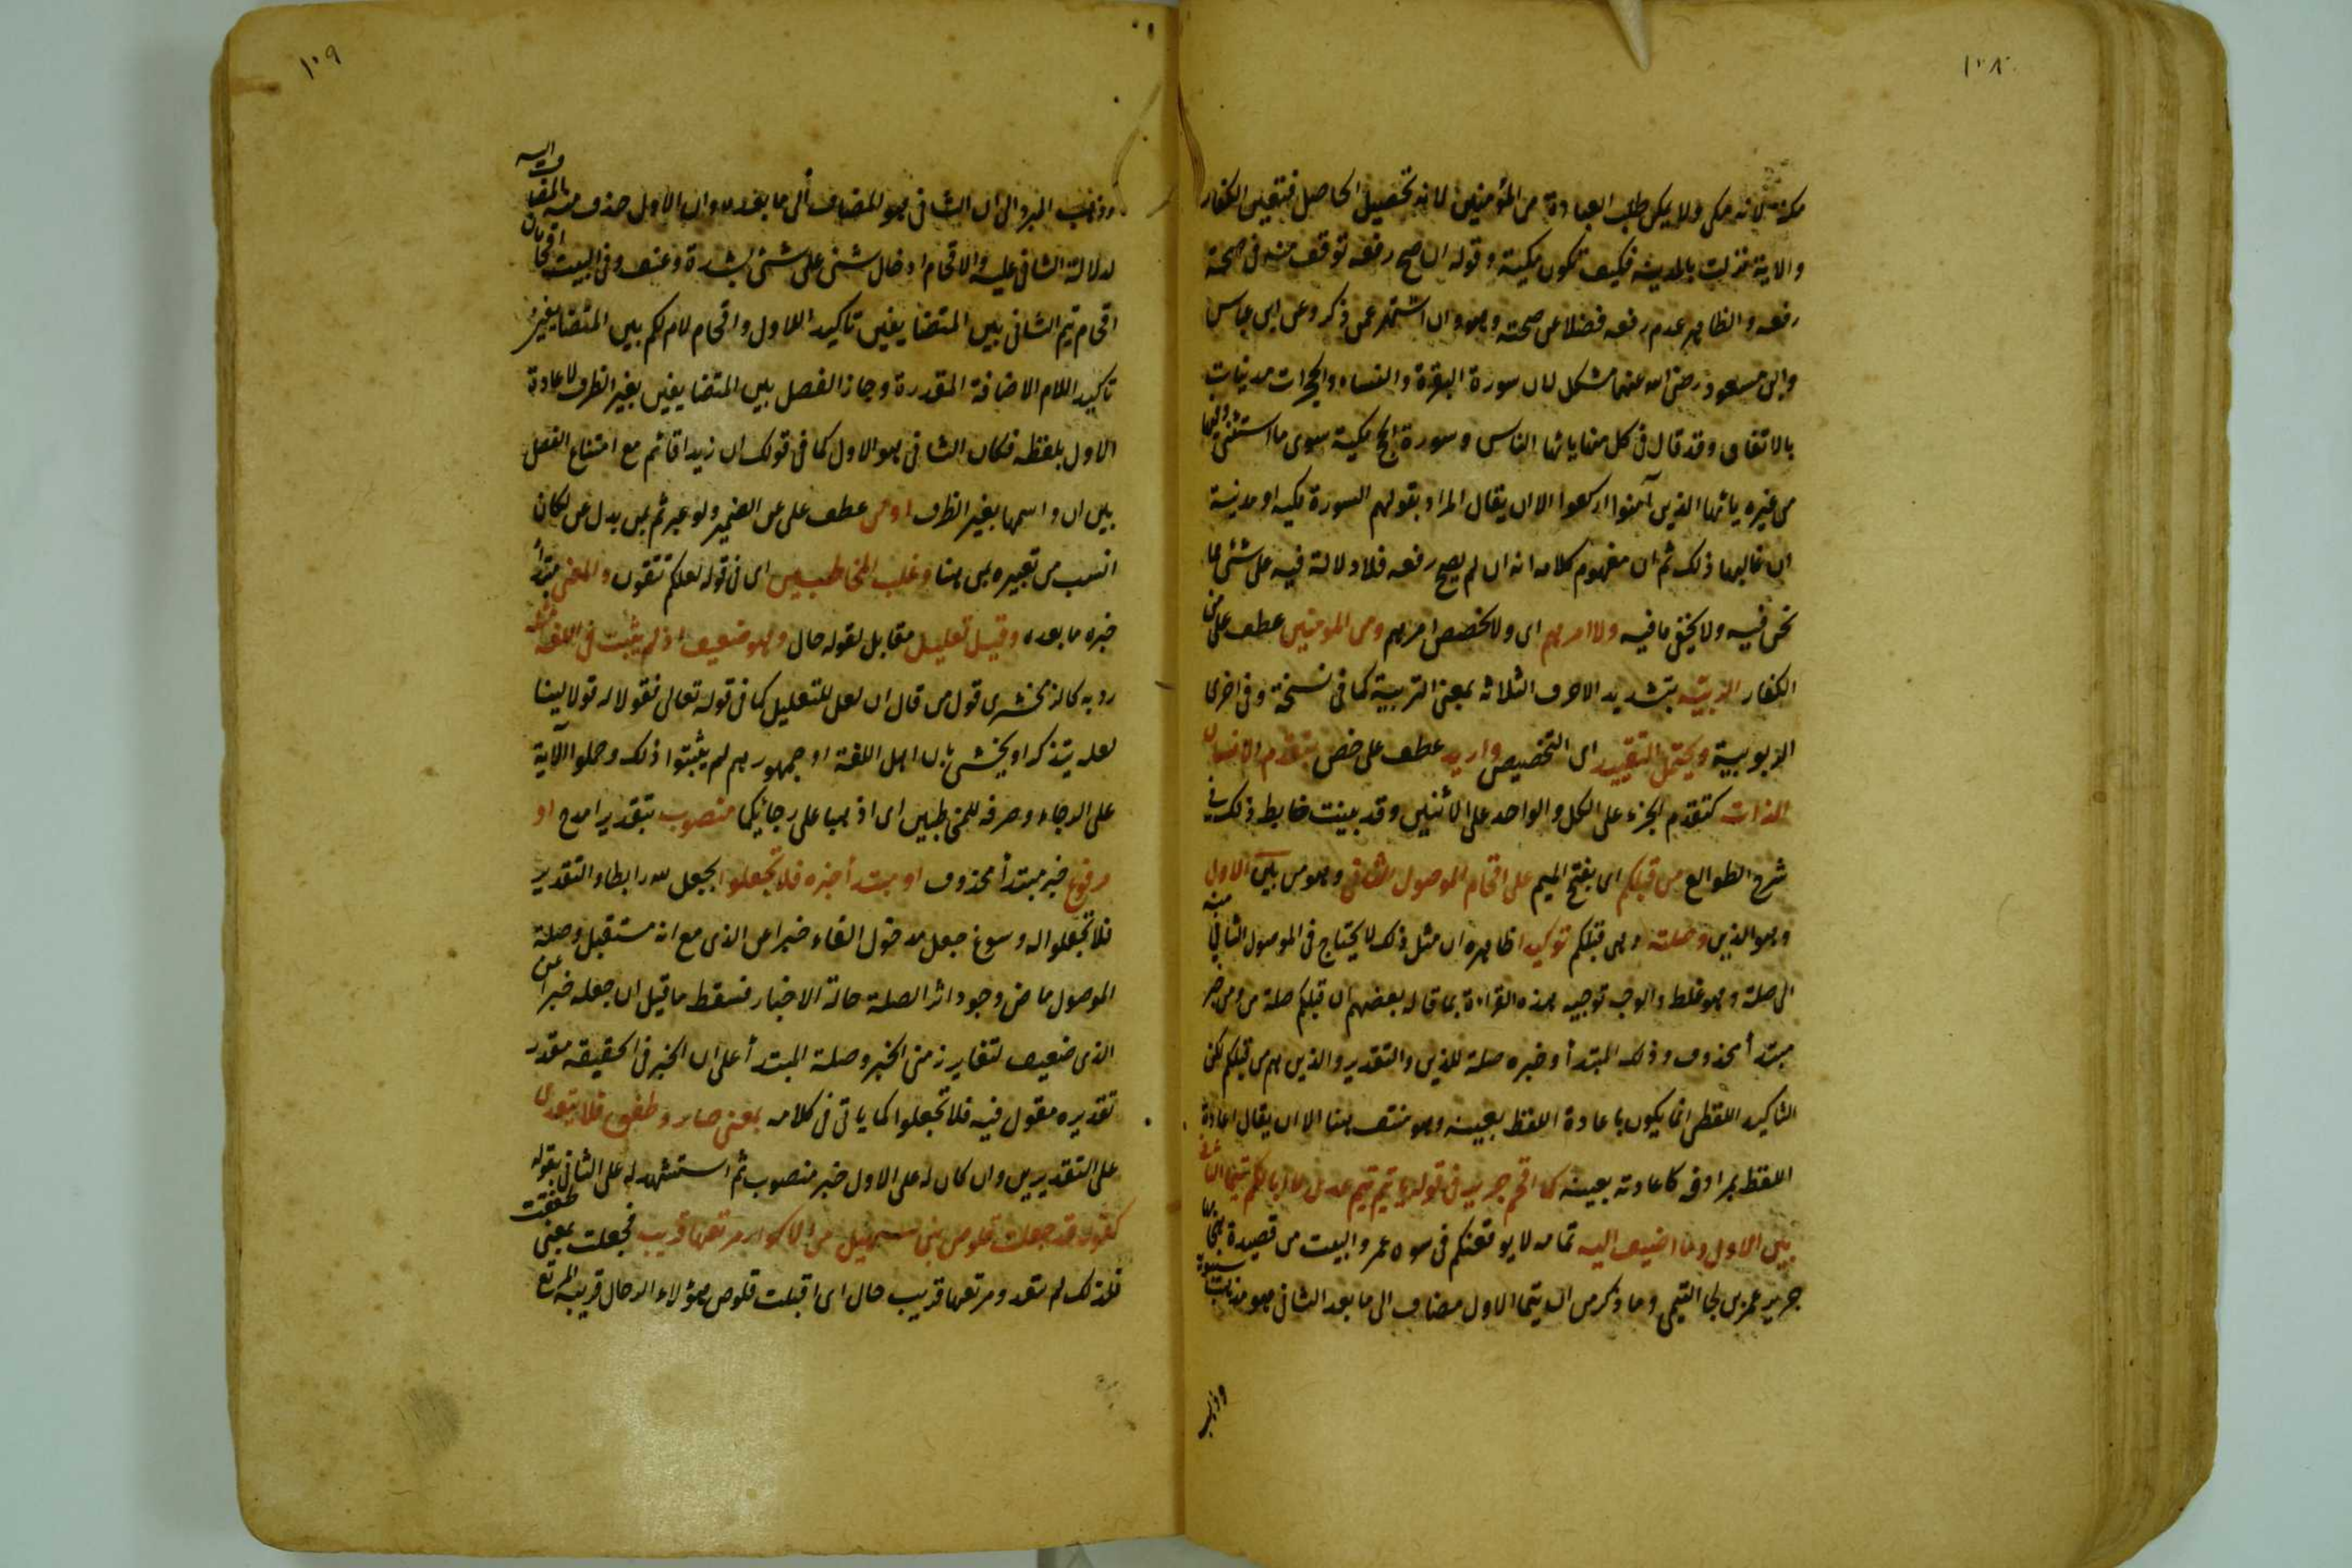 ١٠٨
مكة لانه مكى ولا يمكن طلب العبادة من المؤمنين لانه تحصيل الحاصل فتعين الكفار
والاية نزلت بالمدينة فكيف تكون مكية وقوله ان صح رفعه توقف منه فى صحة
رفعه والظاهر عدم رفعه فضلا عن صحته وهو وان اشتهر عمن ذكر وعن ابن عباس
وابن مسعود رضى الله عنهما مشكل لان سورة البقرة والنساء والحجرات مدنيات
بالاتفاق وقد قال فى كل منها ياايها الناس وسورة الحج مكية سوى ما استثنى وفيها
من غيره ياايها الذين آمنوا اركعوا الا ان يقال المراد بقولهم السورة مكية او مدنية
ان غالبها ذلك ثم ان مفهوم كلامه انه ان لم يصح رفعه فلا دلالة فيه على شئ مما
نحن فيه ولا يخفى ما فيه ولا امرهم اى ولا تخصص امرهم ومن المومنين عطف على من
الكفار الربية بتشديد الاحرف الثلاثة بمعنى التربية كما فى نسخة وفى اخرى
الربوبية ويحتمل التقييد اى التخصيص واريد عطف على خص بتقدم الانسان
الذات كتقدم الجزء على الكل والواحد على الاثنين وقد بينت ضابط ذلك فى
شرح الطوالع من قبلكم اى بفتح الميم على اقحام الموصول الثانى وهو من بين الاول
وهو الذين وصلته وهى قبلكم توكيدا ظاهره ان مثل ذلك لا يحتاج فى الموصول الثانى منه
الى صلة وهو غلط والوجه توجيه هذه القراءة بما قاله بعضهم ان قبلكم صلة من ومن خبر
مبتدأ محذوف وذلك المبتدأ وخبره صلة للذين والتقدير والذين هم من قبلكم لكن
التاكيد اللفظى انما يكون باعادة اللفظ بعينه وهو منتف هنا الا ان يقال اعادة
اللفظ بمرادفه كاعادته بعينه كما اقحم جرير فى قوله يا تيم تيم عدى لا ابا لكم تيما الثانى
بين الاول وما اضيف اليه تمامه لا يوقعنكم فى سوءة عمر والبيت من قصيدة هجا بها
جرير عمر بن لجا التيمى وما ذكر من ان تيما الاول مضاف الى ما بعد الثانى هو مذهب سيبويه
وذهب
١٠٩
وذهب المبرد الى ان الثانى هو المضاف الى ما بعده وان الاول حذف منه المضاف اليه
لدلالة الثانى عليه والاقحام ادخال شئ على شئ بشدة وعنف وفى البيت اقحامان
اقحام تيم الثانى بين المتضايفين تاكيدا للاول واقحام لام لكم بين المتضايفين
تاكيدا للام الاضافة المقدرة وجاز الفصل بين المتضايفين بغير الظرف لاعادة
الاول بلفظه فكان الثانى هو الاول كما فى قولك ان زيدا قائم مع امتناع الفصل
بين ان واسمها بغير الظرف او من عطف على عن الضمير ولو عبر ثم بمن بدل عن لكان
انسب من تعبيره بمن هنا وغلب المخاطبين اى فى قوله لعلكم تتقون والمعنى مبتدأ
خبره ما بعده وقيل تعليل مقابل لقوله حال وهو ضعيف اذ لم يثبت فى اللغة مثله
رد به كالزمخشرى قول من قال ان لعل للتعليل كما فى قوله تعالى فقولا له قولا لينا
لعله يتذكر او يخشى بان اهل اللغة او جمهورهم لم يثبتوا ذلك وحملوا الآية
على الرجاء وصرفه للمخاطبين اى اذهبا على رجائكما منصوب بتقدير امدح او
مرفوع خبر مبتدأ محذوف او مبتدأ خبره فلا تجعلوا بجعل لله رابطا والتقدير
فلا تجعلوا له وسوغ جعل مدخول الفاء خبرا عن الذى مع انه مستقبل وصلة
الموصول ماض وجود اثر الصلة حالة الاخبار فسقط ما قيل ان جعله خبرا عن
الذى ضعيف لتغاير زمنى الخبر وصلة المبتدأ على ان الخبر فى الحقيقة مقدر
تقديره مقول فيه فلا تجعلوا كما ياتى فى كلامه بمعنى صار وطفق فلا يتعدى
على التقديرين وان كان له على الاول خبر منصوب ثم استشهد له على الثانى بقوله
كقوله قد جعلت قلوص بنى سهيل من الاكوار مرتعها قريب فجعلت بمعنى طفقت
فلذلك لم تتعد ومرتعها قريب حال اى اقبلت قلوص هؤلاء الرحال قريبة المرتع